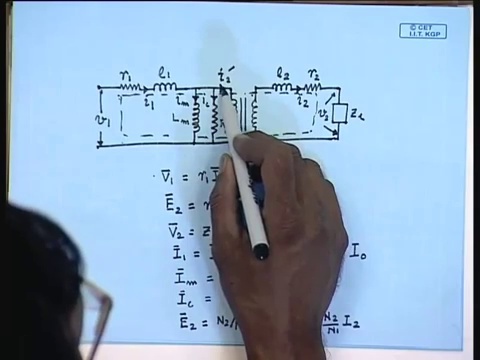 © CET
I.I.T. KGP
r₁ l₁ i₂′ l₂ r₂
i₁ iₘ i꜀ i₂
v₁ Lₘ v₂ Z_L
V̄₁ = r₁
Ē₂ =
V̄₂ = Z
Ī₁ = I₀
Īₘ =
Ī꜀ =
Ē₂ = N₂/ N₂/N₁ I₂